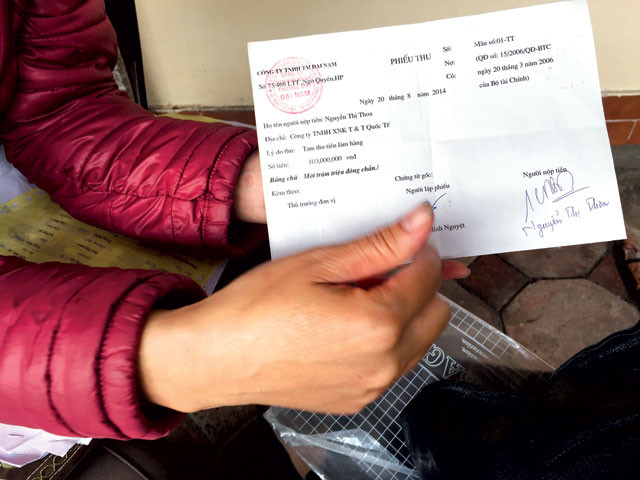 CÔNG TY TNHH TM ĐẠI NAM
Số 73/466 LTT, Ngô Quyền,HP
ĐẠI NAM
PHIẾU THU
Số:
Nợ:
Có:
Mẫu số:01-TT
(QĐ số: 15/2006/QĐ-BTC
ngày 20 tháng 3 năm 2006
của Bộ tài Chính)
Ngày 20 tháng 8 năm 2014
Họ tên người nộp tiền: Nguyễn Thị Thoa
Địa chỉ: Công ty TNHH XNK T & T Quốc Tế
Lý do thu: Tạm thu tiền làm hàng
Số tiền: 100,000,000 vnđ
Bằng chữ Một trăm triệu đồng chẵn./
Kèm theo:
Chứng từ gốc:
Thủ trưởng đơn vị
Người lập phiếu
Người nộp tiền
Nguyệt
Nguyễn Thị Thoa